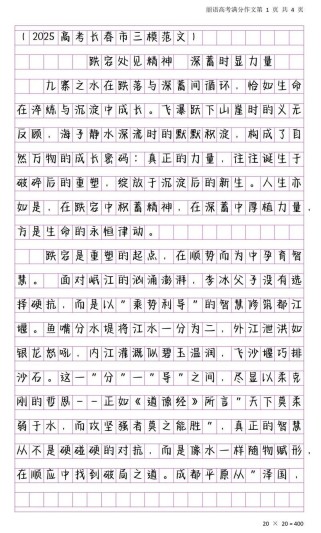 丽语高考满分作文第 1 页 共 4 页
(2025高考长春市三模范文)
跌宕处见精神 深蓄时显力量
九寨之水在跌落与深蓄间循环，恰如生命
在淬炼与沉淀中成长。飞瀑跌下山崖时的义无
反顾，海子静水深流时的默默积淀，构成了自
然万物的成长密码：真正的力量，往往诞生于
破碎后的重塑，绽放于沉淀后的新生。人生亦
如是，在跌宕中积蓄精神，在深蓄中厚植力量，
方是生命的永恒律动。
跌宕是重塑的起点，在顺势而为中孕育智
慧。 面对岷江的汹涌澎湃，李冰父子没有选
择硬抗，而是以“乘势利导”的智慧修筑都江
堰。鱼嘴分水堤将江水一分为二，外江泄洪如
银龙怒吼，内江灌溉似碧玉温润，飞沙堰巧排
沙石。这一“分”一“导”之间，尽显以柔克
刚的哲思--正如《道德经》所言“天下莫柔
弱于水，而攻坚强者莫之能胜”，真正的智慧
从不是硬碰硬的对抗，而是像水一样随物赋形，
在顺应中找到破局之道。成都平原从“泽国，
20 × 20 = 400